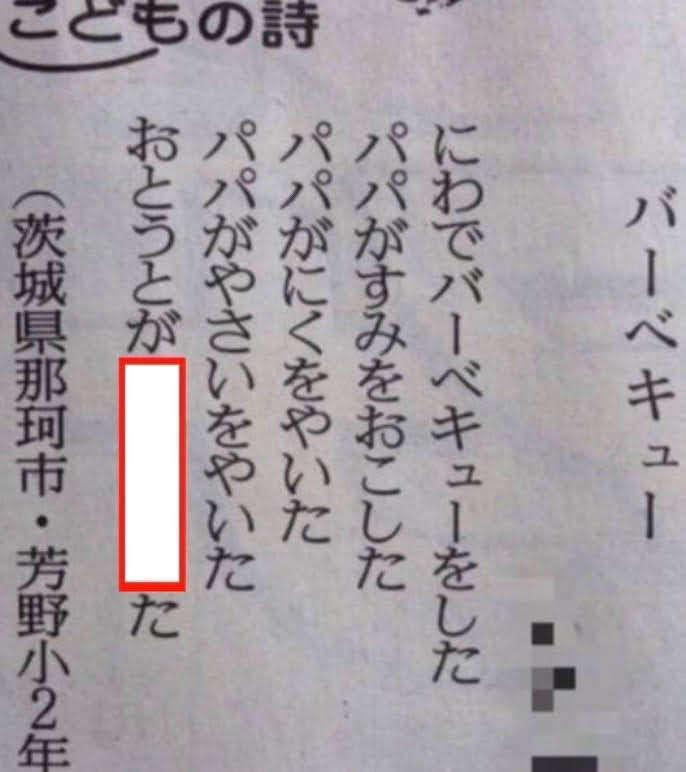 こどもの詩
バーベキュー
にわでバーベキューをした
パパがすみをおこした
パパがにくをやいた
パパがやさいをやいた
おとうとが　　　　　た
（茨城県那珂市・芳野小2年